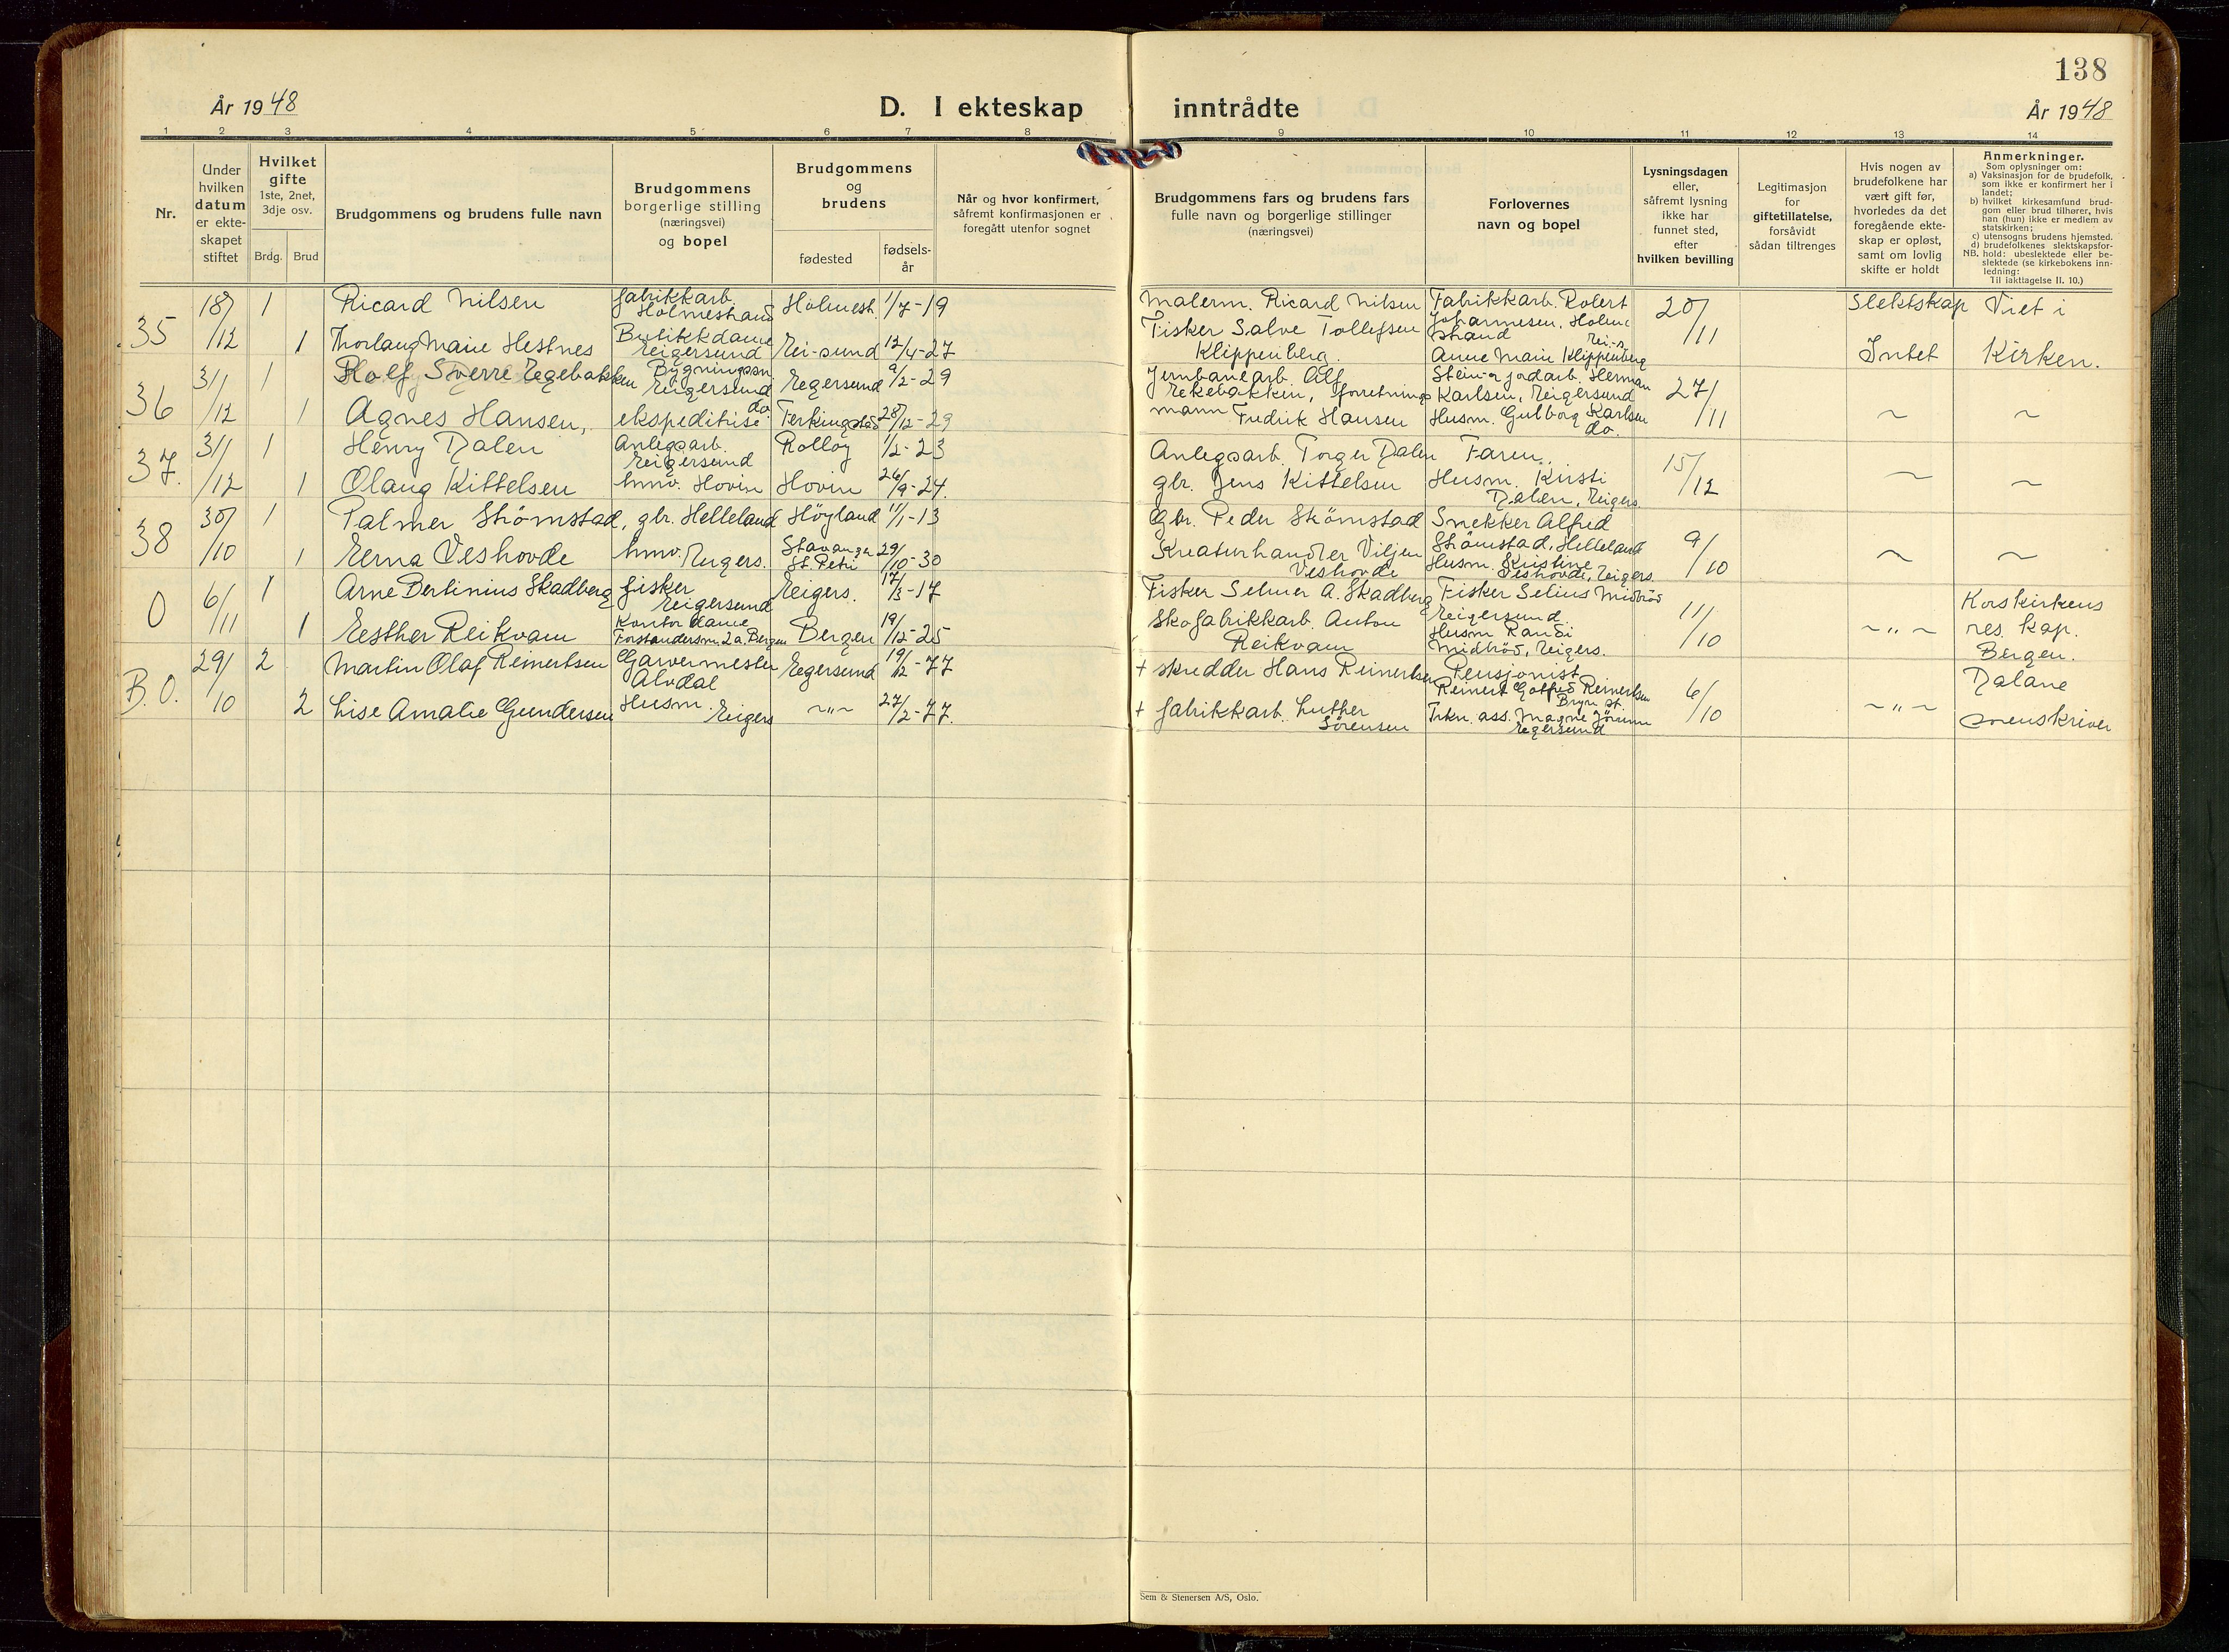 138
År 1948
D. I ekteskap inntrådte
År 1948
1 2 3 4 5 6 7 8 9 10 11 12 13 14
Nr.
Under hvilken datum er ekteskapet stiftet
Hvilket gifte
1ste, 2net, 3dje osv.
Brdg. Brud
Brudgommens og brudens fulle navn
Brudgommens borgerlige stilling (næringsvei) og bopel
Brudgommens og brudens
fødested
fødselsår
Når og hvor konfirmert, såfremt konfirmasjonen er foregått utenfor sognet
Brudgommens fars og brudens fars fulle navn og borgerlige stillinger (næringsvei)
Forlovernes navn og bopel
Lysningsdagen eller, såfremt lysning ikke har funnet sted, efter hvilken bevilling
Legitimasjon for giftetillatelse, forsåvidt sådan tiltrenges
Hvis nogen av brudefolkene har vært gift før, hvorledes da det foregående ekteskap er opløst, samt om lovlig skifte er holdt
Anmerkninger.
Som oplysninger om:
a) Vaksinasjon for de brudefolk, som ikke er konfirmert her i landet;
b) hvilket kirkesamfund brudgom eller brud tilhører, hvis han (hun) ikke er medlem av statskirken;
c) utensogns brudens hjemsted.
d) brudefolkenes slektskapsforhold: ubeslektede eller beslektede (se kirkebokens innledning:
NB. Til iakttagelse II. 10.)
35 18/12 1 Ricard Nilsen fabrikkarb. Holmestrand Holmest. 1/7-19 Malerm. Ricard Nilsen Fabrikkarb. Robert Johannesen, Holmestrand 20/11 Slektskap Viet i
1 Thorlaug Marie Hestnes Butikkdame Eigersund Ei-sund 12/4-27 Fisker Salve Tollefsen Klippenberg. Anne Marie Klippenberg Ei-s. Intet Kirken.
36 31/12 1 Rolf Sverre Egebakken Bygningssn. Eigersund Egersund 9/2-29 Jernbanearb. Alf Eekebakken, Stein- og jordarb. Herman Karlsen, Eigersund 27/11
1 Agnes Hansen, ekspeditrise do. Ferkingstad 28/12-29 forretningsmann Fredrik Hansen Husm. Gulborg Karlsen do. ~ ~
37. 31/12 1 Henry Dalen Anlegsarb. Eigersund Rolloy 1/2-23 Anlegsarb. Torger Dalen Faren, 15/12
1 Olaug Kittelsen hmv. Hovin Hovin 26/9-24. gbr. Jens Kittelsen Husm. Kirsti Dalen, Eigers. ~ ~
38 30/10 1 Palmer Strömstad, gbr. Helleland Höyland 11/1-13 Gbr. Peder Strömstad Snekker Alfred Strömstad, Helleland 9/10
1 Erna Veshovde hmv. Eigers. Stavanger St. Petri 29/10-30 Kreaturhandler Viljen Veshovde Husm. Kristine Veshovde, Eigers. ~ ~
0 6/11 1 Arne Bertinius Skadberg fisker Eigersund Eigers. 17/3-17 Fisker Selmer A. Skadberg Fisker Selius Midbröd Eigersund 11/10 Korskirkens
1 Esther Reikvam Kontordame Forstandersm. 2a, Bergen Bergen 19/12-25 Skofabrikkarb. Anton Reikvam Husm Randi Midbröd, Eigers. ~ " ~ res. kap. Bergen.
B.O. 29/10 2 Martin Olaf Reinertsen Garvermester Alvdal Egersund 19/12-77 + skredder Hans Reinertsen Pensjonist Reinert Gotfred Reinertsen Bryn st. 6/10 Dalane
2 Lise Amalie Gundersen Husm. Eigers ~ " ~ 27/2-77. + fabrikkarb. Luther Sörensen Trkn. ass. Magne Egersund ~ " ~ sorenskriver
Sem & Stenersen A/S, Oslo.